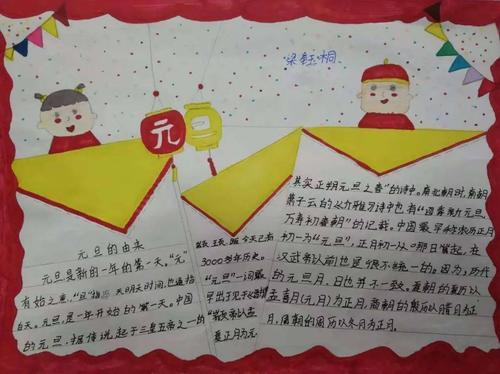 梁钰桐
元旦
元旦的由来
元旦是新的一年的第一天。"元"
有始之意,"旦"指天明天时间,也通指
白天。元旦,是一年开始的第一天。中国
的元旦,据传说起于三皇五帝之一的
距今已有
3000多年历史。
"元旦"一词最
早出于
"颛帝以孟
夏正月为元
其实正朔元旦之春"的诗中。南北朝时,南朝
萧子云的《介雅》诗中也有"四季新元旦,
万寿初春朝"的记载。中国最早称农历正月
初一为"元旦",正月初一从哪日算起,在
汉武帝以前也是很不统一的。因为,历代
的元旦月、日也并不一致。夏朝的夏历以
孟喜月(元月)为正月,商朝的殷历以腊月为正
月,周朝的周历以冬月为正月。